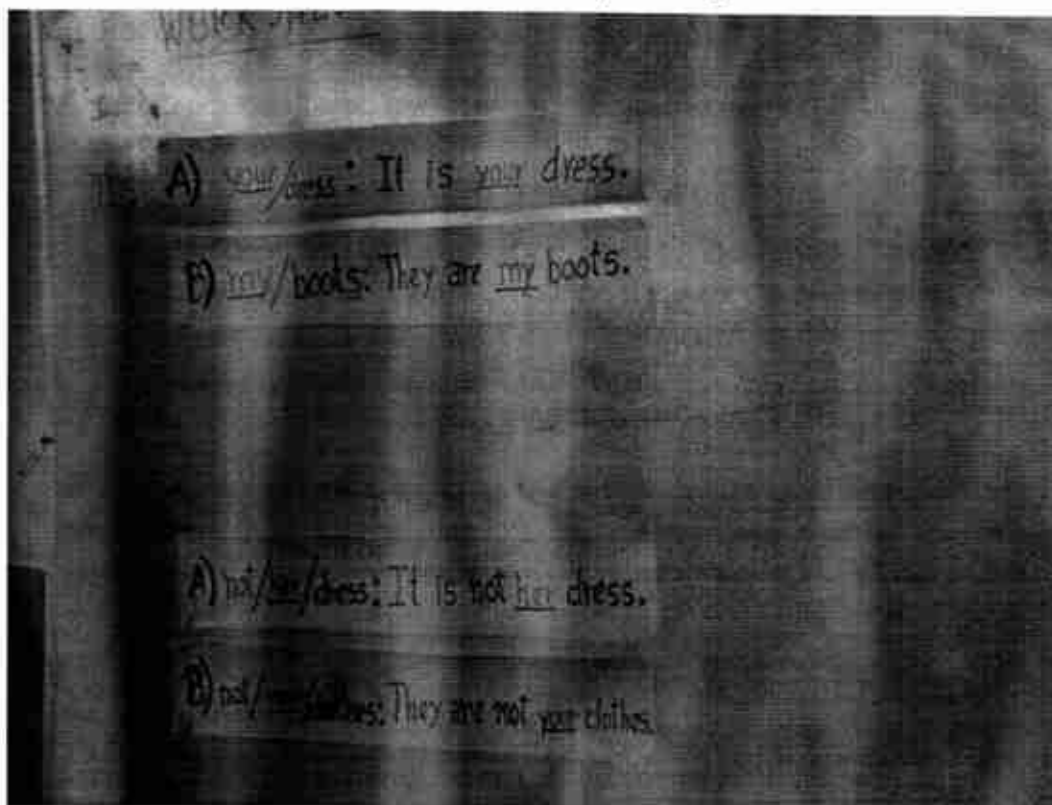 A) your/dress: It is your dress.
B) my/boots: They are my boots.
A) not/her/dress: It is not her dress.
B) not/your/clothes: They are not your clothes.